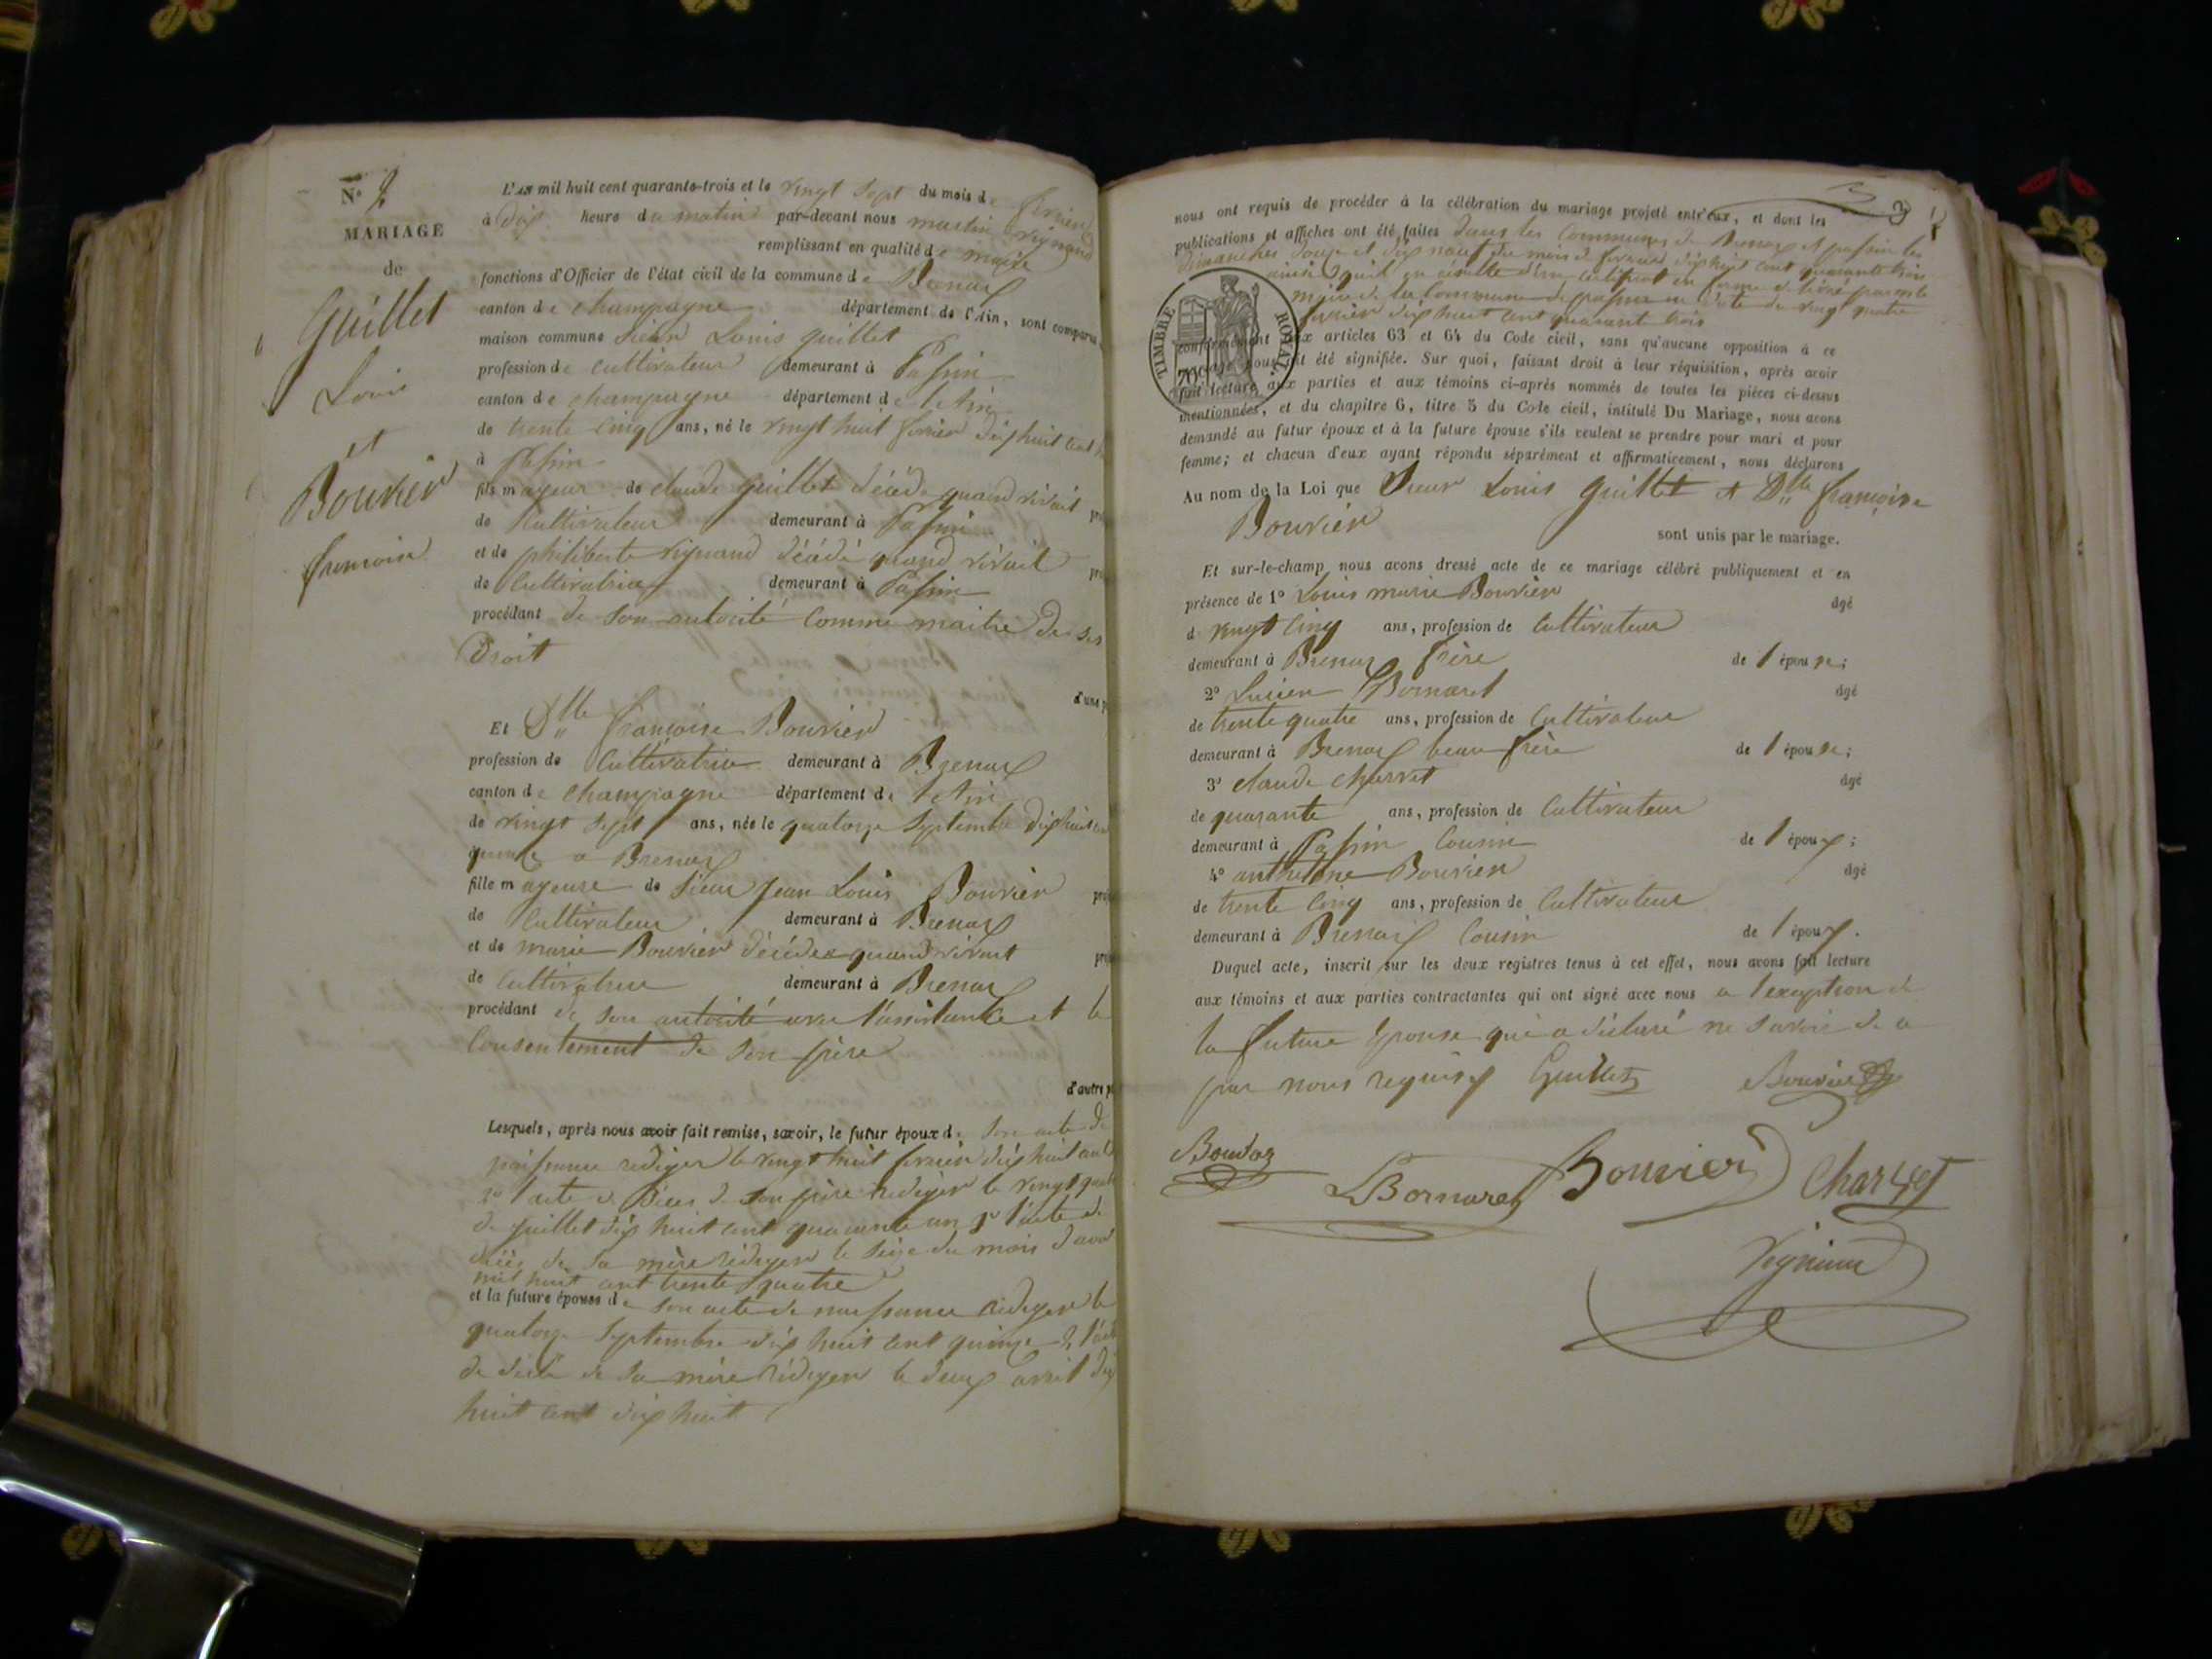 N° 2
MARIAGE
de
Guillet
Louis
et
Bouvier
francoise
L'AN mil huit cent quarante-trois et le vingt sept du mois de fevrier
à dix heure du matin par-devant nous martin vignand
remplissant en qualité de maire
fonctions d'Officier de l'état civil de la commune de Brenaz
canton de champagne département de l'Ain, sont comparus
maison commune Sieur Louis guillet
profession de cultivateur demeurant à Passin
canton de champagne département de l'Ain
de trente cinq ans, né le vingt huit fevrier dix huit cent
à Passin
fils majeur de claude guillet décédé quand vivait
de Cultivateur demeurant à Passin
et de philiberte vignand décédé quand vivait
de Cultivatrice demeurant à Passin
procédant de son autorité comme maitre de ses
Droit
d'une p
Et Dlle francoise Bouvier
profession de Cultivatrice demeurant à Brenaz
canton de champagne département de l'Ain
de vingt sept ans, née le quatorze Septembre dix huit cent
quinze a Brenaz
fille mayeure de Sieur Jean Louis Bouvier
de Cultivateur demeurant à Brenaz
et de marie Bouvier décédée quand vivait
de Cultivatrice demeurant à Brenaz
procédant de son autorité avec l'assistance et le
Consentement de son père
d'autre p
Lesquels, après nous avoir fait remise, savoir, le futur époux de son acte de
naissance rediger le vingt huit fevrier dix huit cent
2° l'acte de décés de son père rediger le vingt quatre
de juillet dix huit cent quarante un 3° l'acte de
décès de sa mère rédiger le seize du mois d'avril
mil huit cent trente quatre
et la future épouse de son acte de naissance rédiger le
quatorze Septembre dix huit cent quinze 2° l'acte
de décès de sa mère rédiger le deux avril dix
huit cent dix huit
3
nous ont requis de procéder à la célébration du mariage projeté entr'eux, et dont les
publications et affiches ont été faites dans les Communes de Brenaz et passin les
dimanches douze et dix neuf du mois de fevrier dix huit cent quarante trois
ainsi qu'il en résulte d'un certificat en forme délivré par mr le
maire de la Commune de passin en date du vingt quatre
fevrier dix huit cent quarante trois
TIMBRE ROYAL.
70
conformément aux articles 63 et 64 du Code civil, sans qu'aucune opposition à ce
mariage nous ait été signifiée. Sur quoi, faisant droit à leur réquisition, après avoir
fait lecture aux parties et aux témoins ci-après nommés de toutes les pièces ci-dessus
mentionnées, et du chapitre 6, titre 5 du Code civil, intitulé Du Mariage, nous avons
demandé au futur époux et à la future épouse s'ils veulent se prendre pour mari et pour
femme; et chacun d'eux ayant répondu séparément et affirmativement, nous déclarons
Au nom de la Loi que Sieur Louis guillet et Dlle françoise
Bouvier
sont unis par le mariage.
Et sur-le-champ nous avons dressé acte de ce mariage célébré publiquement et en
présence de 1° Louis marie Bouvier âgé
d vingt cinq ans, profession de Cultivateur
demeurant à Brenaz frère de l'épouse;
2° Lucien Bornaret âgé
de trente quatre ans, profession de Cultivateur
demeurant à Brenaz beau frère de l'épouse;
3° claude charvet âgé
de quarante ans, profession de Cultivateur
demeurant à Passin Cousin de l'époux;
4° anthelme Bouvier âgé
de trente cinq ans, profession de Cultivateur
demeurant à Brenaz Cousin de l'époux.
Duquel acte, inscrit sur les deux registres tenus à cet effet, nous avons fait lecture
aux témoins et aux parties contractantes qui ont signé avec nous a l'exception de
la future Epouse qui a déclaré ne savoir de a
par nous requis Guillet Bouvier
LBornaret Bouvier Charvet
Vignand